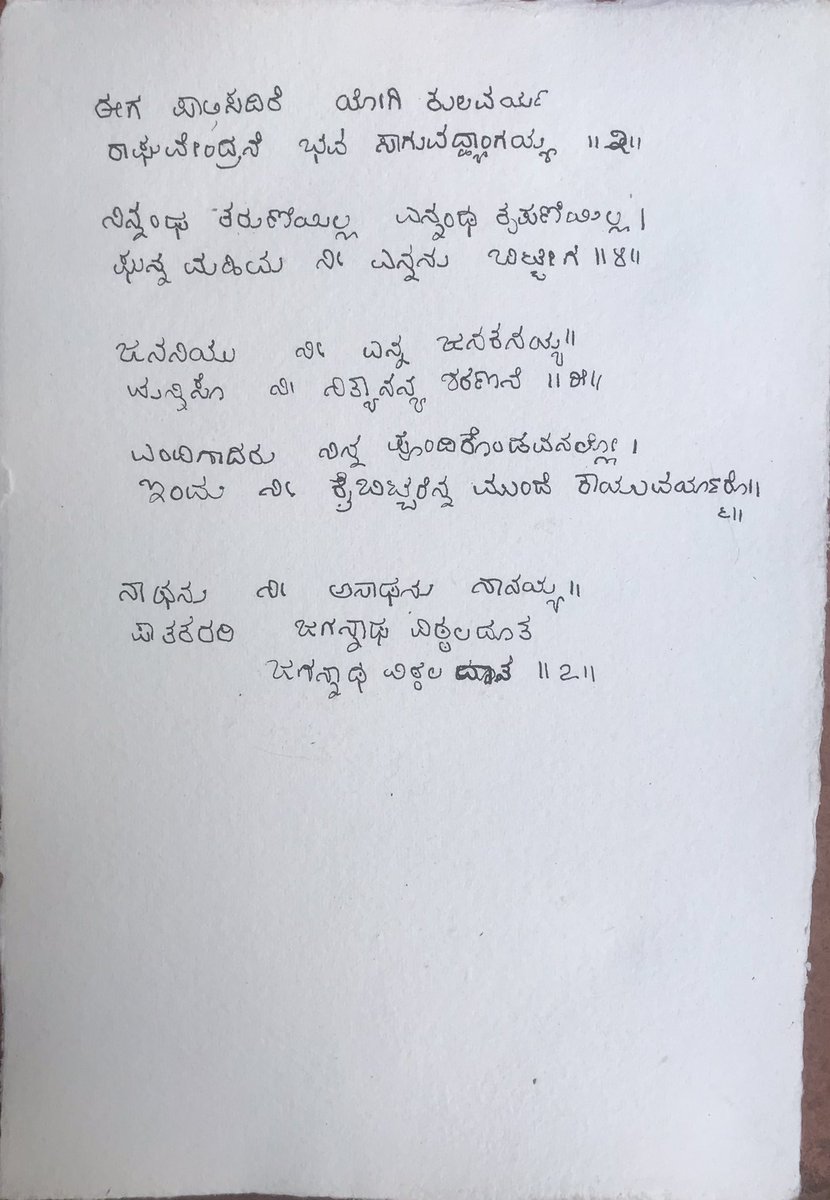 ಈಗ ಪಾಲಿಸದಿರೆ ಯೋಗಿ ಕುಲವರ್ಯ
ರಾಘವೇಂದ್ರನೆ ಭವ ಸಾಗುವದ್ಹ್ಯಾಂಗಯ್ಯ ॥ ೩॥
ನಿನ್ನಂಥ ಕರುಣೆಯಿಲ್ಲ ಎನ್ನಂಥ ಕೃಪಣೆಯಿಲ್ಲ ।
ಘನ್ನ ಮಹಿಮ ನೀ ಎನ್ನನು ಬಿಟ್ಟೀಗ ॥೪॥
ಜನನಿಯು ನೀ ಎನ್ನ ಜನಕನಯ್ಯ॥
ಮನ್ನಿಸೊ ನೀ ನಿತ್ಯಾನನ್ಯ ಶರಣನೆ ॥ ೫॥
ಎಂದಿಗಾದರು ನಿನ್ನ ಪೊಂದಿಕೊಂಡವನಲ್ಲೋ ।
ಇಂದು ನೀ ಕೈಬಿಟ್ಟರೆನ್ನ ಮುಂದೆ ಕಾಯುವರ್ಯಾರೊ॥
೬॥
ನಾಥನು ನೀ ಅನಾಥನು ನಾನಯ್ಯ॥
ಪಾತಕರರಿ ಜಗನ್ನಾಥ ವಿಠ್ಠಲದೂತ
ಜಗನ್ನಾಥ ವಿಠ್ಠಲ ದೂತ ॥ ೭॥